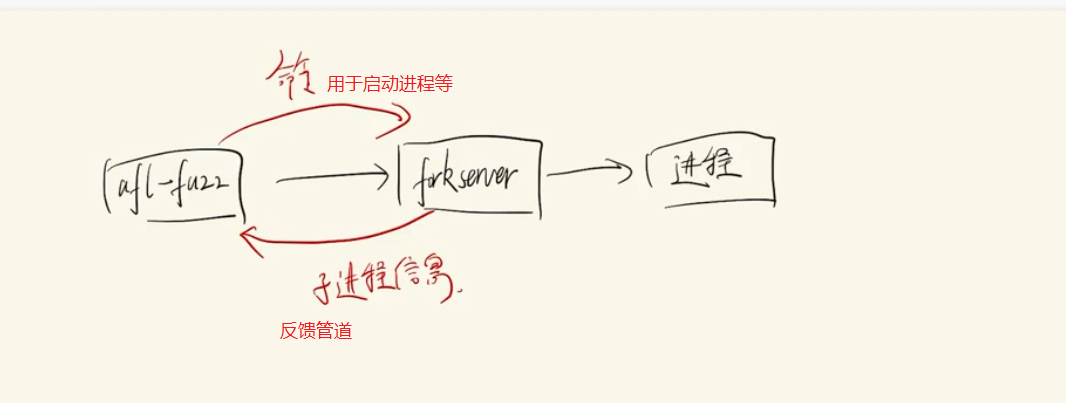 命令 用于启动进程等
afl-fuzz
forkserver
进程
子进程信息.
反馈管道